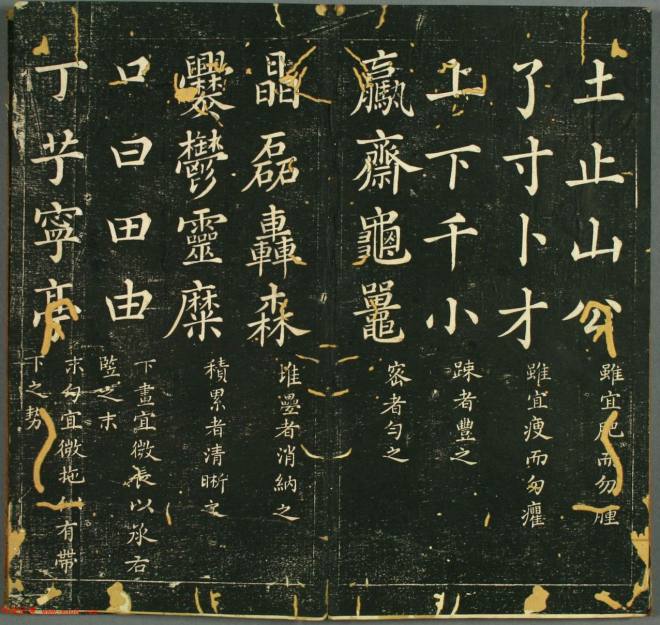 土止山公 雖宜肥而勿腫
了寸卜才 雖宜瘦而勿癯
上下千小 疎者豐之
羸齋龜鼉 密者勻之
晶磊轟森 堆壘者消納之
爨鬱靈糜 積累者清晰之
口曰田由 下畫宜微長以承右
監之末
丁芋寧亭 末勾宜微拖 有帶
下之勢